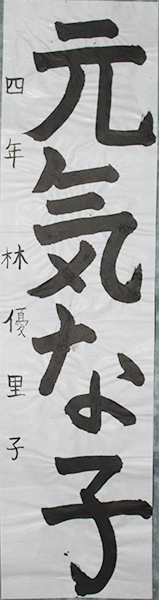 元気な子
四年 林優里子